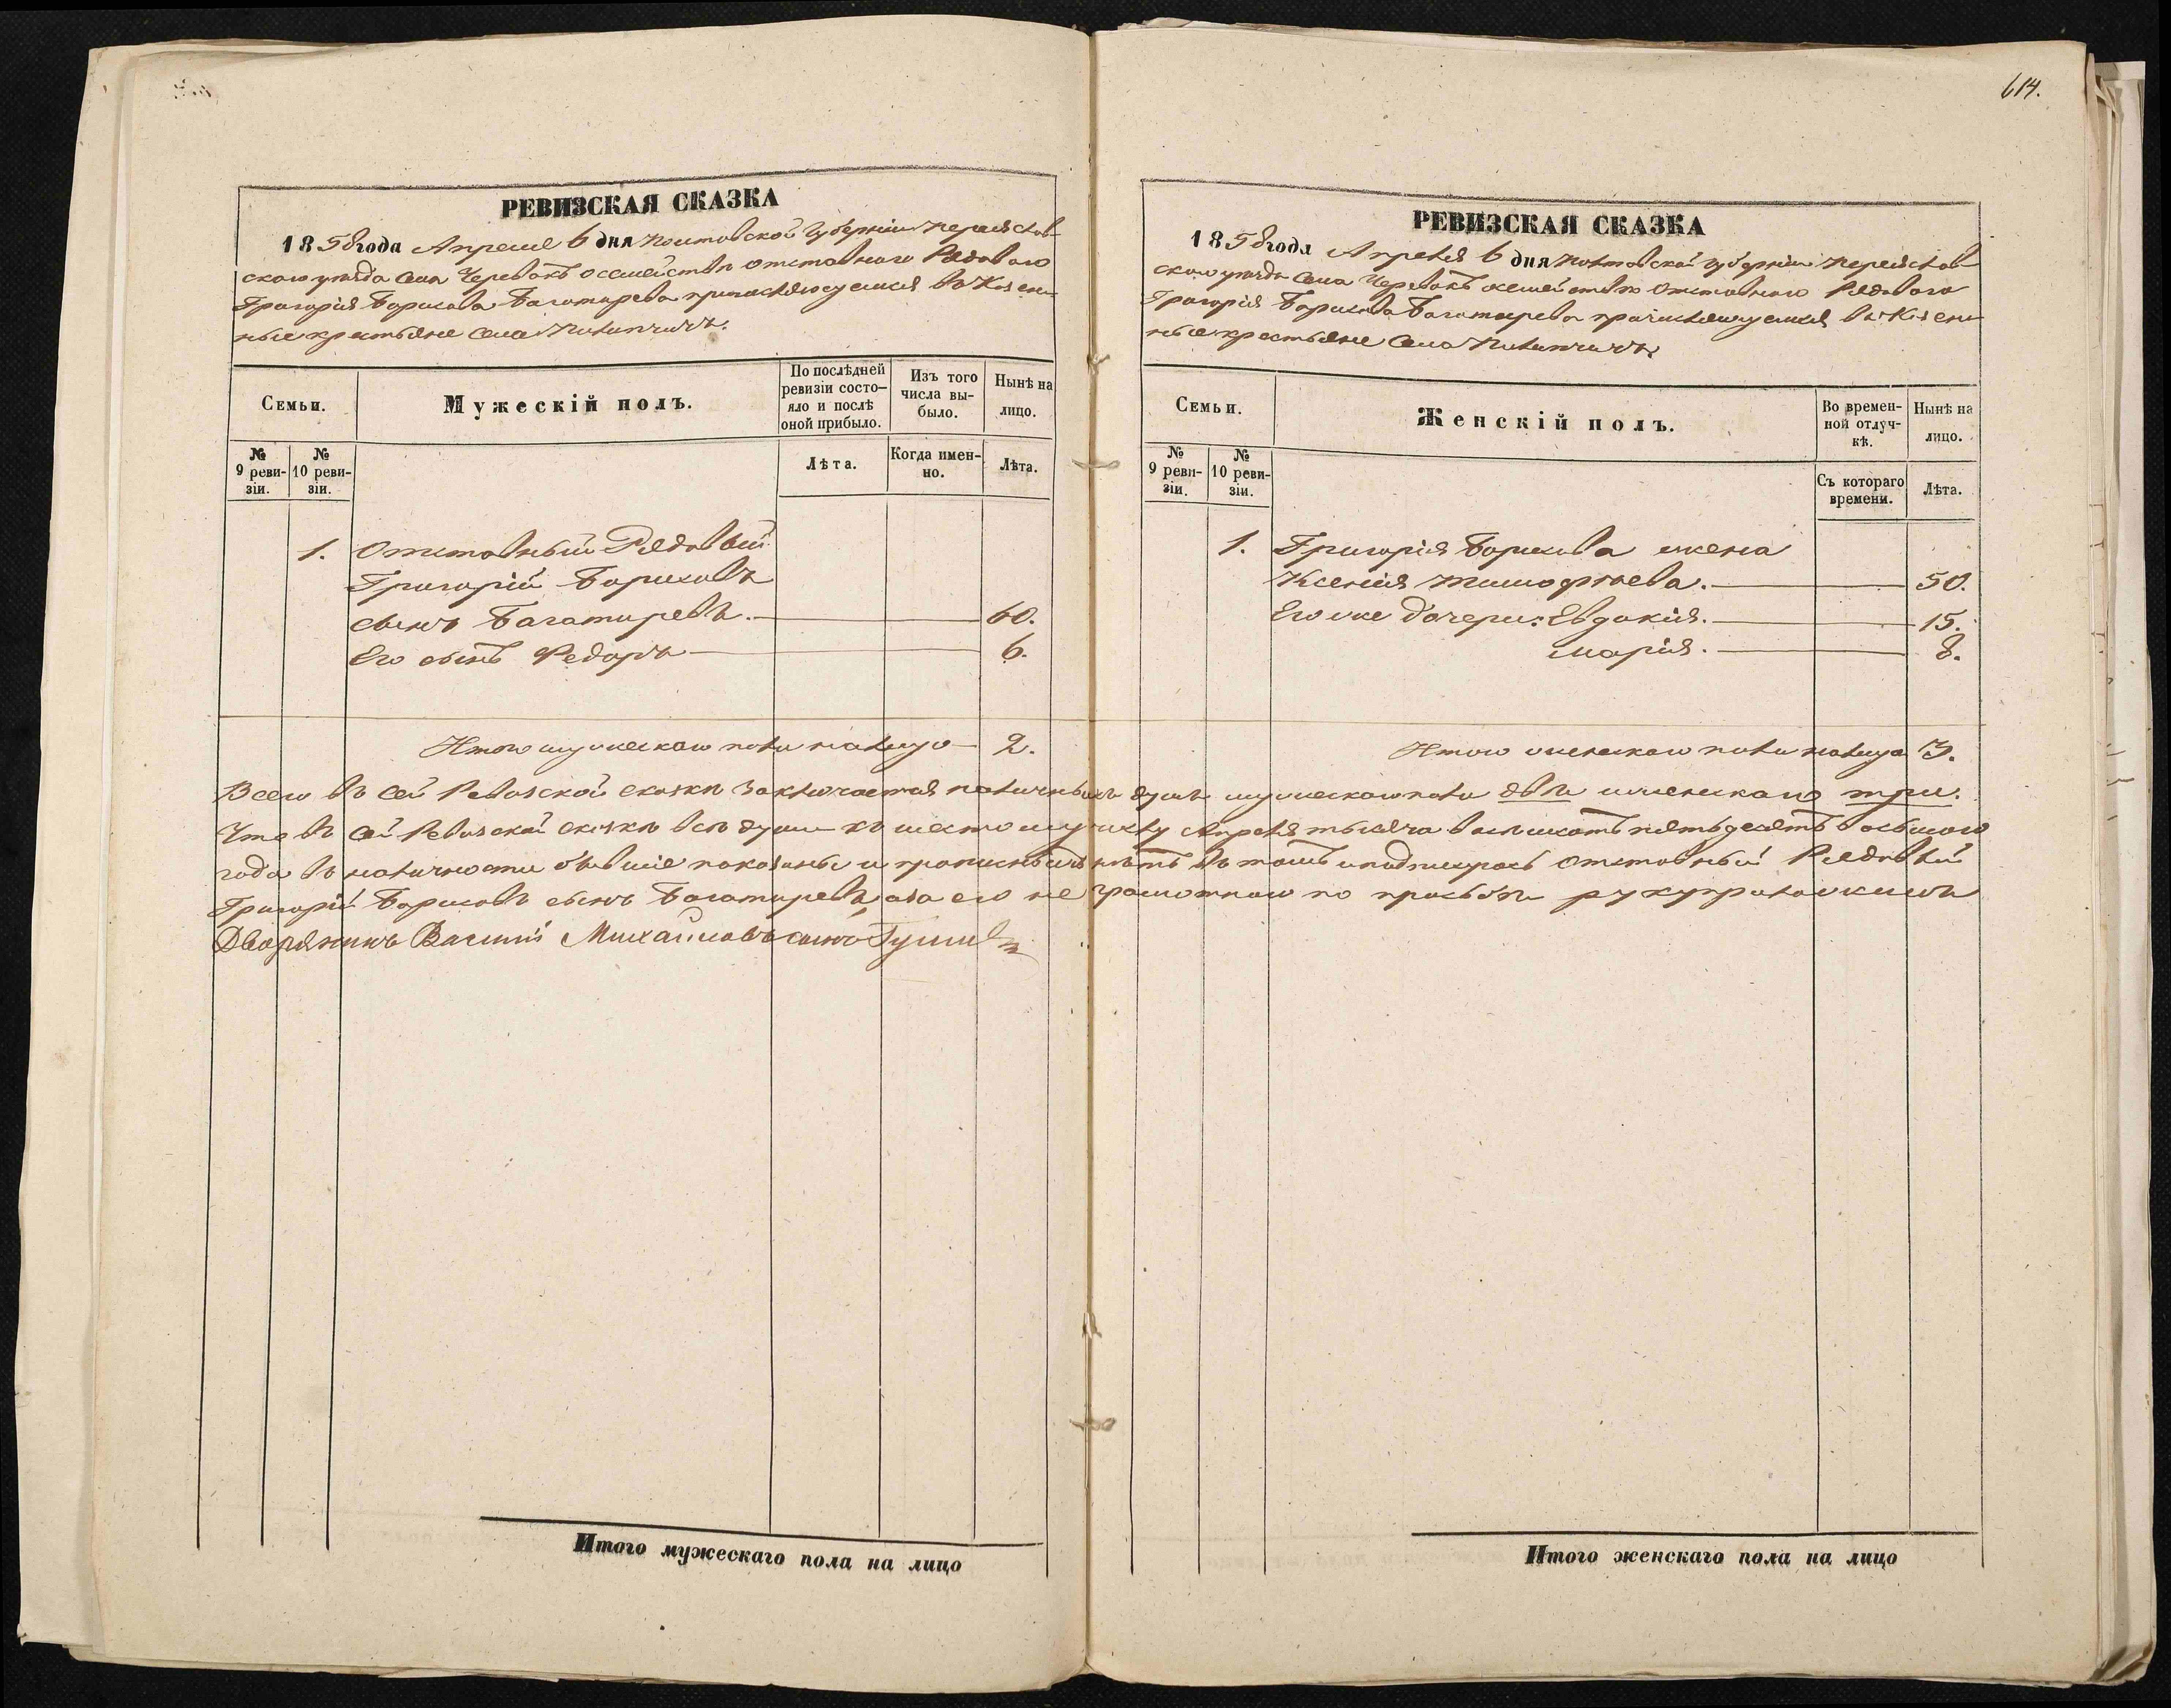 614.
РЕВИЗСКАЯ СКАЗКА
1858 года Апреля 6 дня Полтавской Губерніи Переяслав-
скаго уѣзда села Черевокъ о семействѣ отставнаго Рядоваго
Григорія Борисова Багатырева причисляющемся въ Казен-
ные крестьяне села
Семьи.
Мужескій полъ.
По послѣдней ревизіи состо-
яло и послѣ оной прибыло.
Изъ того числа вы-
было.
Нынѣ на лицо.
№ 9 реви-
зіи.
№ 10 реви-
зіи.
Лѣта.
Когда имен-
но.
Лѣта.
1. Отставный Рядовый
Григорій Борисовъ
сынъ Багатыревъ. 60.
Его сынъ Федоръ 6.
Итого мужескаго пола налицо 2.
РЕВИЗСКАЯ СКАЗКА
1858 года Апреля 6 дня Полтавской Губерніи Переяслав-
скаго уѣзда села Черевокъ о семействѣ Отставнаго Рядоваго
Григорія Борисова Багатырева причисляющемся въ Казен-
ные крестьяне села
Семьи.
Женскій полъ.
Во времен-
ной отлуч-
кѣ.
Нынѣ на лицо.
№ 9 реви-
зіи.
№ 10 реви-
зіи.
Съ котораго времени.
Лѣта.
1. Григорія Борисова жена
Ксенія Тимофѣева. 50.
Его же дочери: Евдокія. 15.
Марія. 8.
Итого женскаго пола налицо 3.
Всего въ сей Ревизской сказкѣ заключается наличныхъ душъ мужескаго пола двѣ и женскаго три.
Что въ сей Ревизской сказкѣ всѣ души къ шестому числу Апреля тысяча восемьсотъ пятьдесятъ восьмого
года въ наличности бывшіе показаны и прописныхъ нѣтъ въ томъ и подписуюсь Отставный Рядовый
Григорій Борисовъ сынъ Багатыревъ, а за его не грамотнаго по прозьбѣ
Дворянинъ Василій Михайловъ сынъ
Итого мужескаго пола на лицо
Итого женскаго пола на лицо